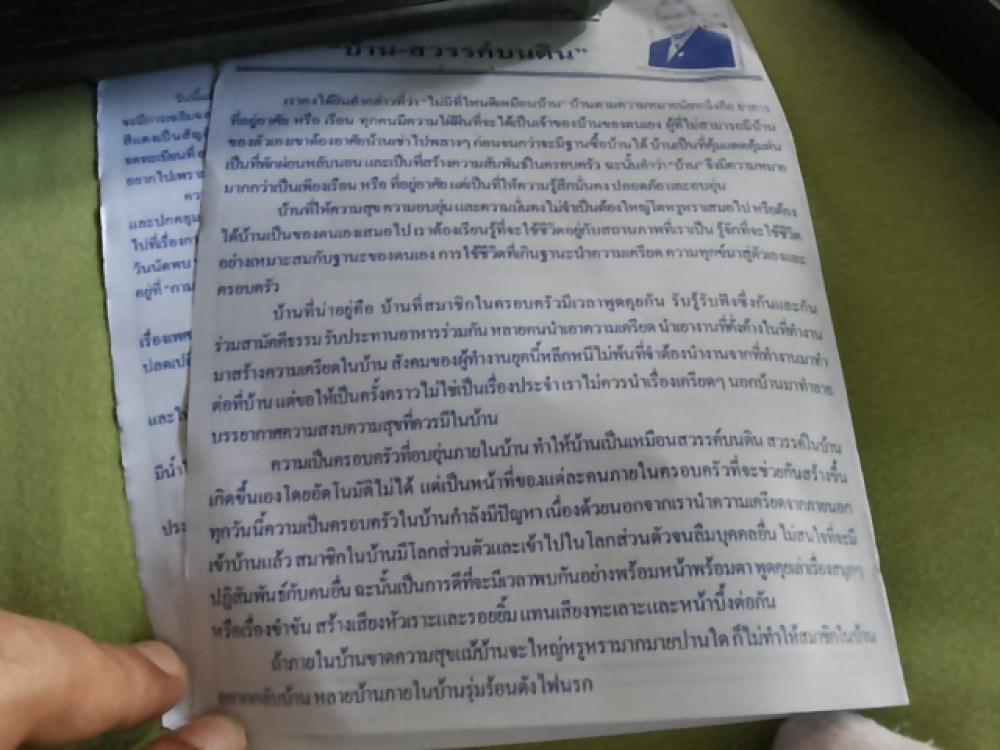 "บ้าน-สวรรค์บนดิน"
เราคงได้ยินคำกล่าวที่ว่า "ไม่มีที่ไหนดีเหมือนบ้าน" บ้านตามความหมายนัยหนึ่งคือ อาคาร
ที่อยู่อาศัย หรือ เรือน ทุกคนมีความใฝ่ฝันที่จะได้เป็นเจ้าของบ้านของตนเอง ผู้ที่ไม่สามารถมีบ้าน
ของตัวเองเขาต้องอาศัยบ้านเช่าไปพลางๆ ก่อนจนกว่าจะมีฐานะซื้อบ้านได้ บ้านเป็นที่คุ้มแดดคุ้มฝน
เป็นที่พักผ่อนหลับนอน และเป็นที่สร้างความสัมพันธ์ในครอบครัว ฉะนั้นคำว่า "บ้าน" จึงมีความหมาย
มากกว่าเป็นเพียงเรือน หรือ ที่อยู่อาศัย แต่เป็นที่ให้ความรู้สึกมั่นคง ปลอดภัย และอบอุ่น
บ้านที่ให้ความสุข ความอบอุ่น และความมั่นคงไม่จำเป็นต้องใหญ่โตหรูหราเสมอไป หรือต้อง
ได้บ้านเป็นของตนเองเสมอไป เราต้องเรียนรู้ที่จะใช้ชีวิตอยู่กับสถานภาพที่เราเป็น รู้จักที่จะใช้ชีวิต
อย่างเหมาะสมกับฐานะของตนเอง การใช้ชีวิตที่เกินฐานะนำความเครียด ความทุกข์มาสู่ตัวเองและ
ครอบครัว
บ้านที่น่าอยู่คือ บ้านที่สมาชิกในครอบครัวมีเวลาพูดคุยกัน รับรู้รับฟังซึ่งกันและกัน
ร่วมสามัคคีธรรม รับประทานอาหารร่วมกัน หลายคนนำเอาความเครียด นำเอางานที่คั่งค้างในที่ทำงาน
มาสร้างความเครียดในบ้าน สังคมของผู้ทำงานยุคนี้หลีกหนีไม่พ้นที่จำต้องนำงานจากที่ทำงานมาทำ
ต่อที่บ้าน แต่ขอให้เป็นครั้งคราวไม่ใช่เป็นเรื่องประจำ เราไม่ควรนำเรื่องเครียดๆ นอกบ้านมาทำลาย
บรรยากาศความสงบความสุขที่ควรมีในบ้าน
ความเป็นครอบครัวที่อบอุ่นภายในบ้าน ทำให้บ้านเป็นเหมือนสวรรค์บนดิน สวรรค์ในบ้าน
เกิดขึ้นเองโดยอัตโนมัติไม่ได้ แต่เป็นหน้าที่ของแต่ละคนภายในครอบครัวที่จะช่วยกันสร้างขึ้น
ทุกวันนี้ความเป็นครอบครัวในบ้านกำลังมีปัญหา เนื่องด้วยนอกจากเรานำความเครียดจากภายนอก
เข้าบ้านแล้ว สมาชิกในบ้านมีโลกส่วนตัวและเข้าไปในโลกส่วนตัวจนลืมบุคคลอื่น ไม่สนใจที่จะมี
ปฏิสัมพันธ์กับคนอื่น ฉะนั้นเป็นการดีที่จะมีเวลาพบกันอย่างพร้อมหน้าพร้อมตา พูดคุยเล่าเรื่องสนุกๆ
หรือเรื่องขำขัน สร้างเสียงหัวเราะและรอยยิ้ม แทนเสียงทะเลาะและหน้าบึ้งต่อกัน
ถ้าภายในบ้านขาดความสุขแม้บ้านจะใหญ่หรูหรามากมายปานใด ก็ไม่ทำให้สมาชิกในบ้าน
อยากกลับบ้าน หลายบ้านภายในบ้านรุ่มร้อนดังไฟนรก
วันนี้
จะมีการเฉลิมฉลอง
สีแดงเป็นสัญ
จดทะเบียนที่
อยากไปเพราะ
และปกคลุม
ไปที่เรื่อง
วันนัดพบ
อยู่ที่ "กาม
เรื่องเพศ
ปลดเปลื้
และใ
มีน้ำ
ประ